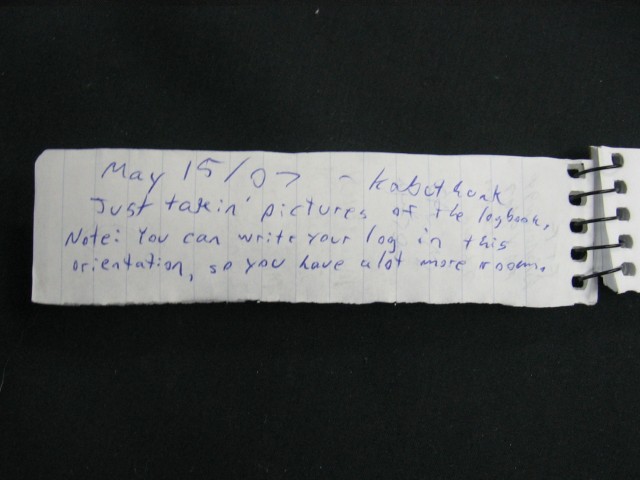 May 15/07 - Kabuthunk
Just takin' pictures of the logbook.
Note: You can write your log in this
orientation, so you have alot more room.